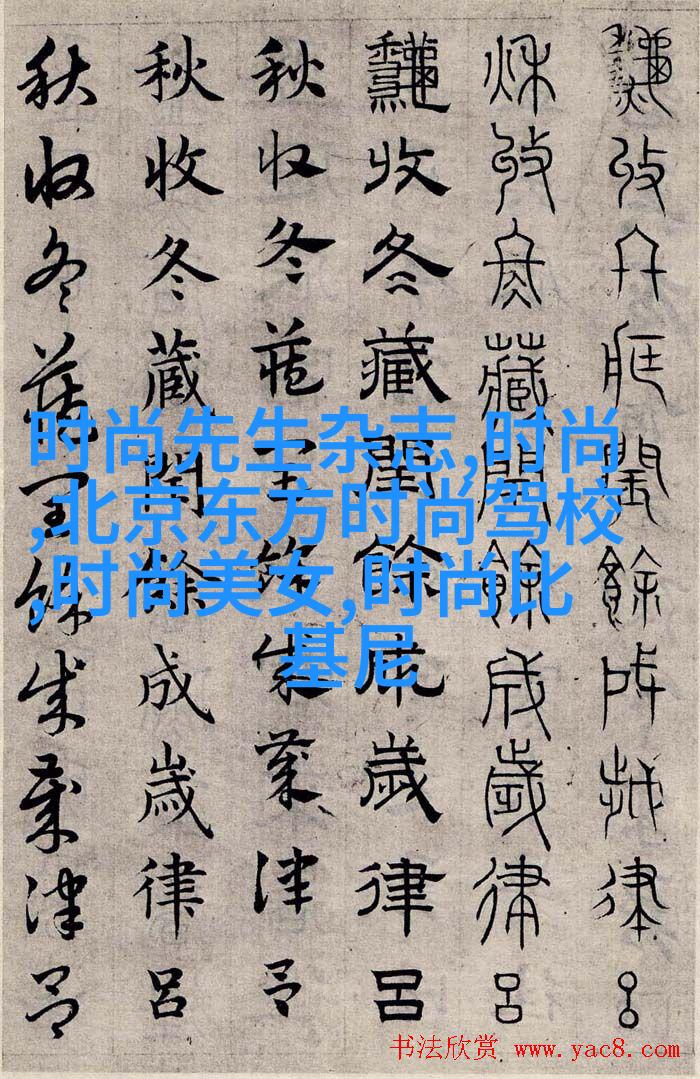 秋收冬藏閏餘成歲律呂
秋收冬藏閏餘成歲律呂
秋收冬藏閏餘成歲律呂
秋收冬藏閏餘成歲律呂
秋收冬藏閏餘成歲律呂
秋收冬藏閏餘成歲律呂
时尚先生杂志,时尚
,北京东方时尚驾校
,时尚美女,时尚比
基尼
书法欣赏 www.yac8.com